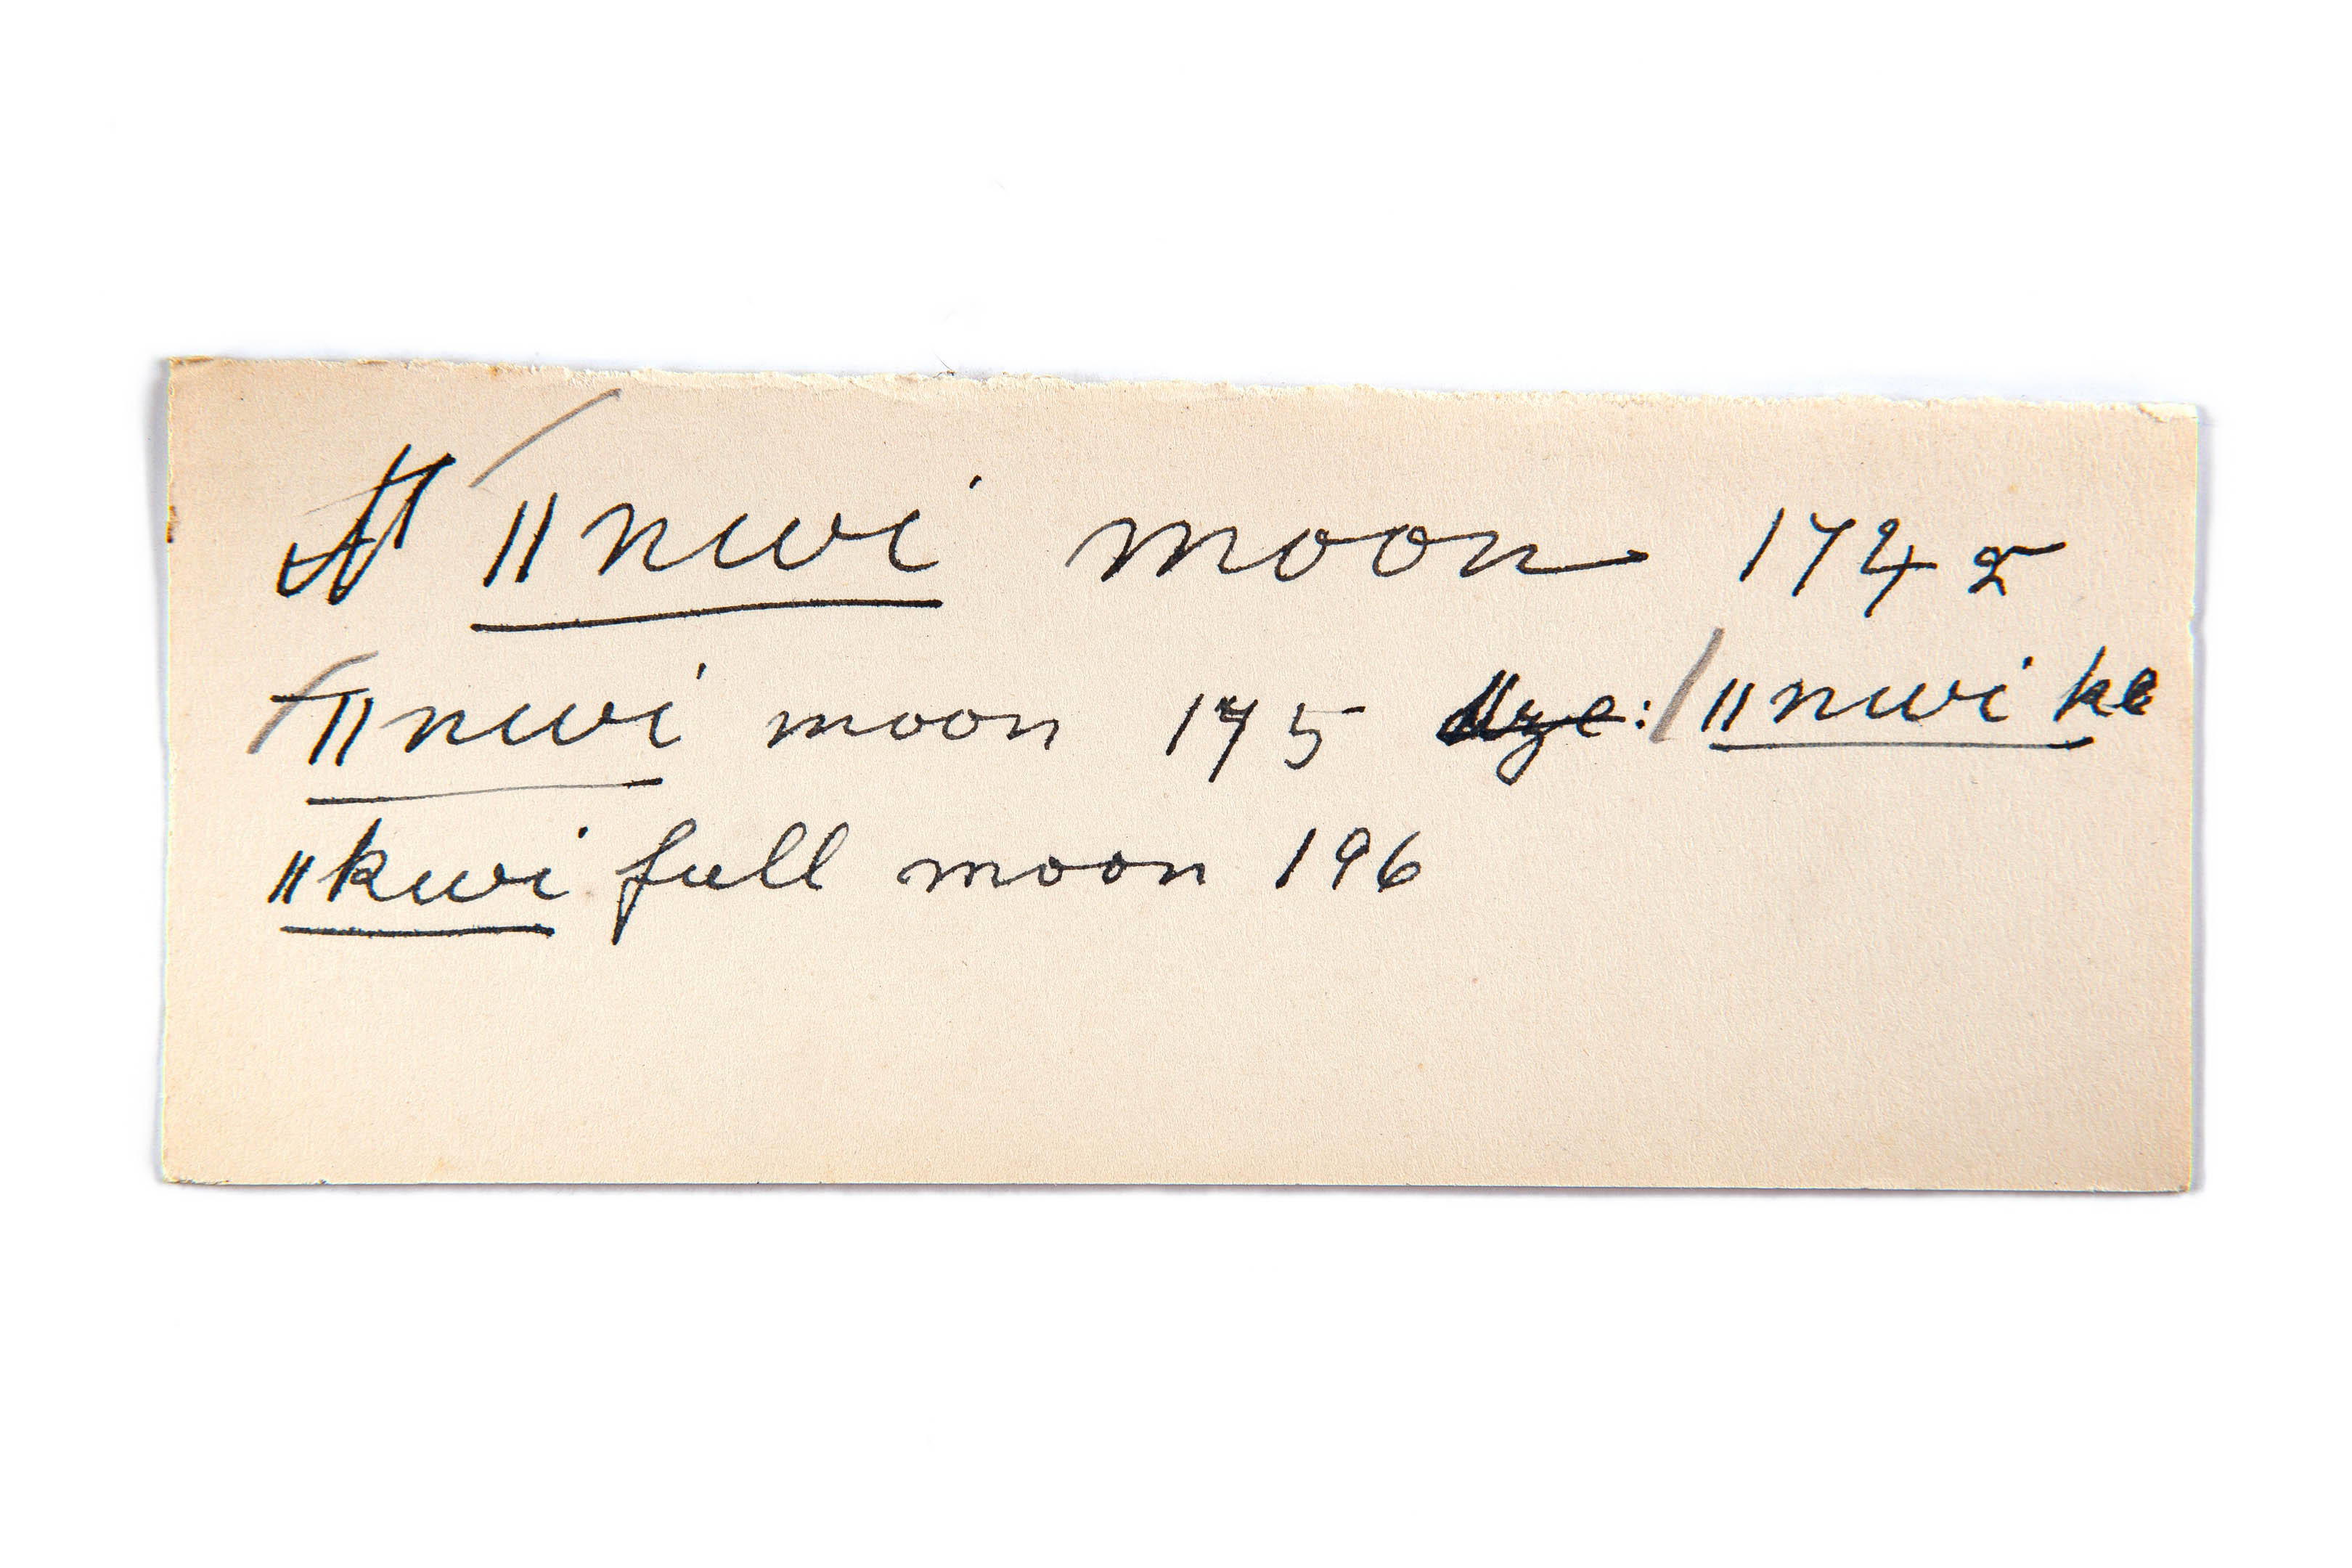 ǁnwi moon 174
ǁnwi moon 175 : ǁnwi ke
ǁkwi full moon 196